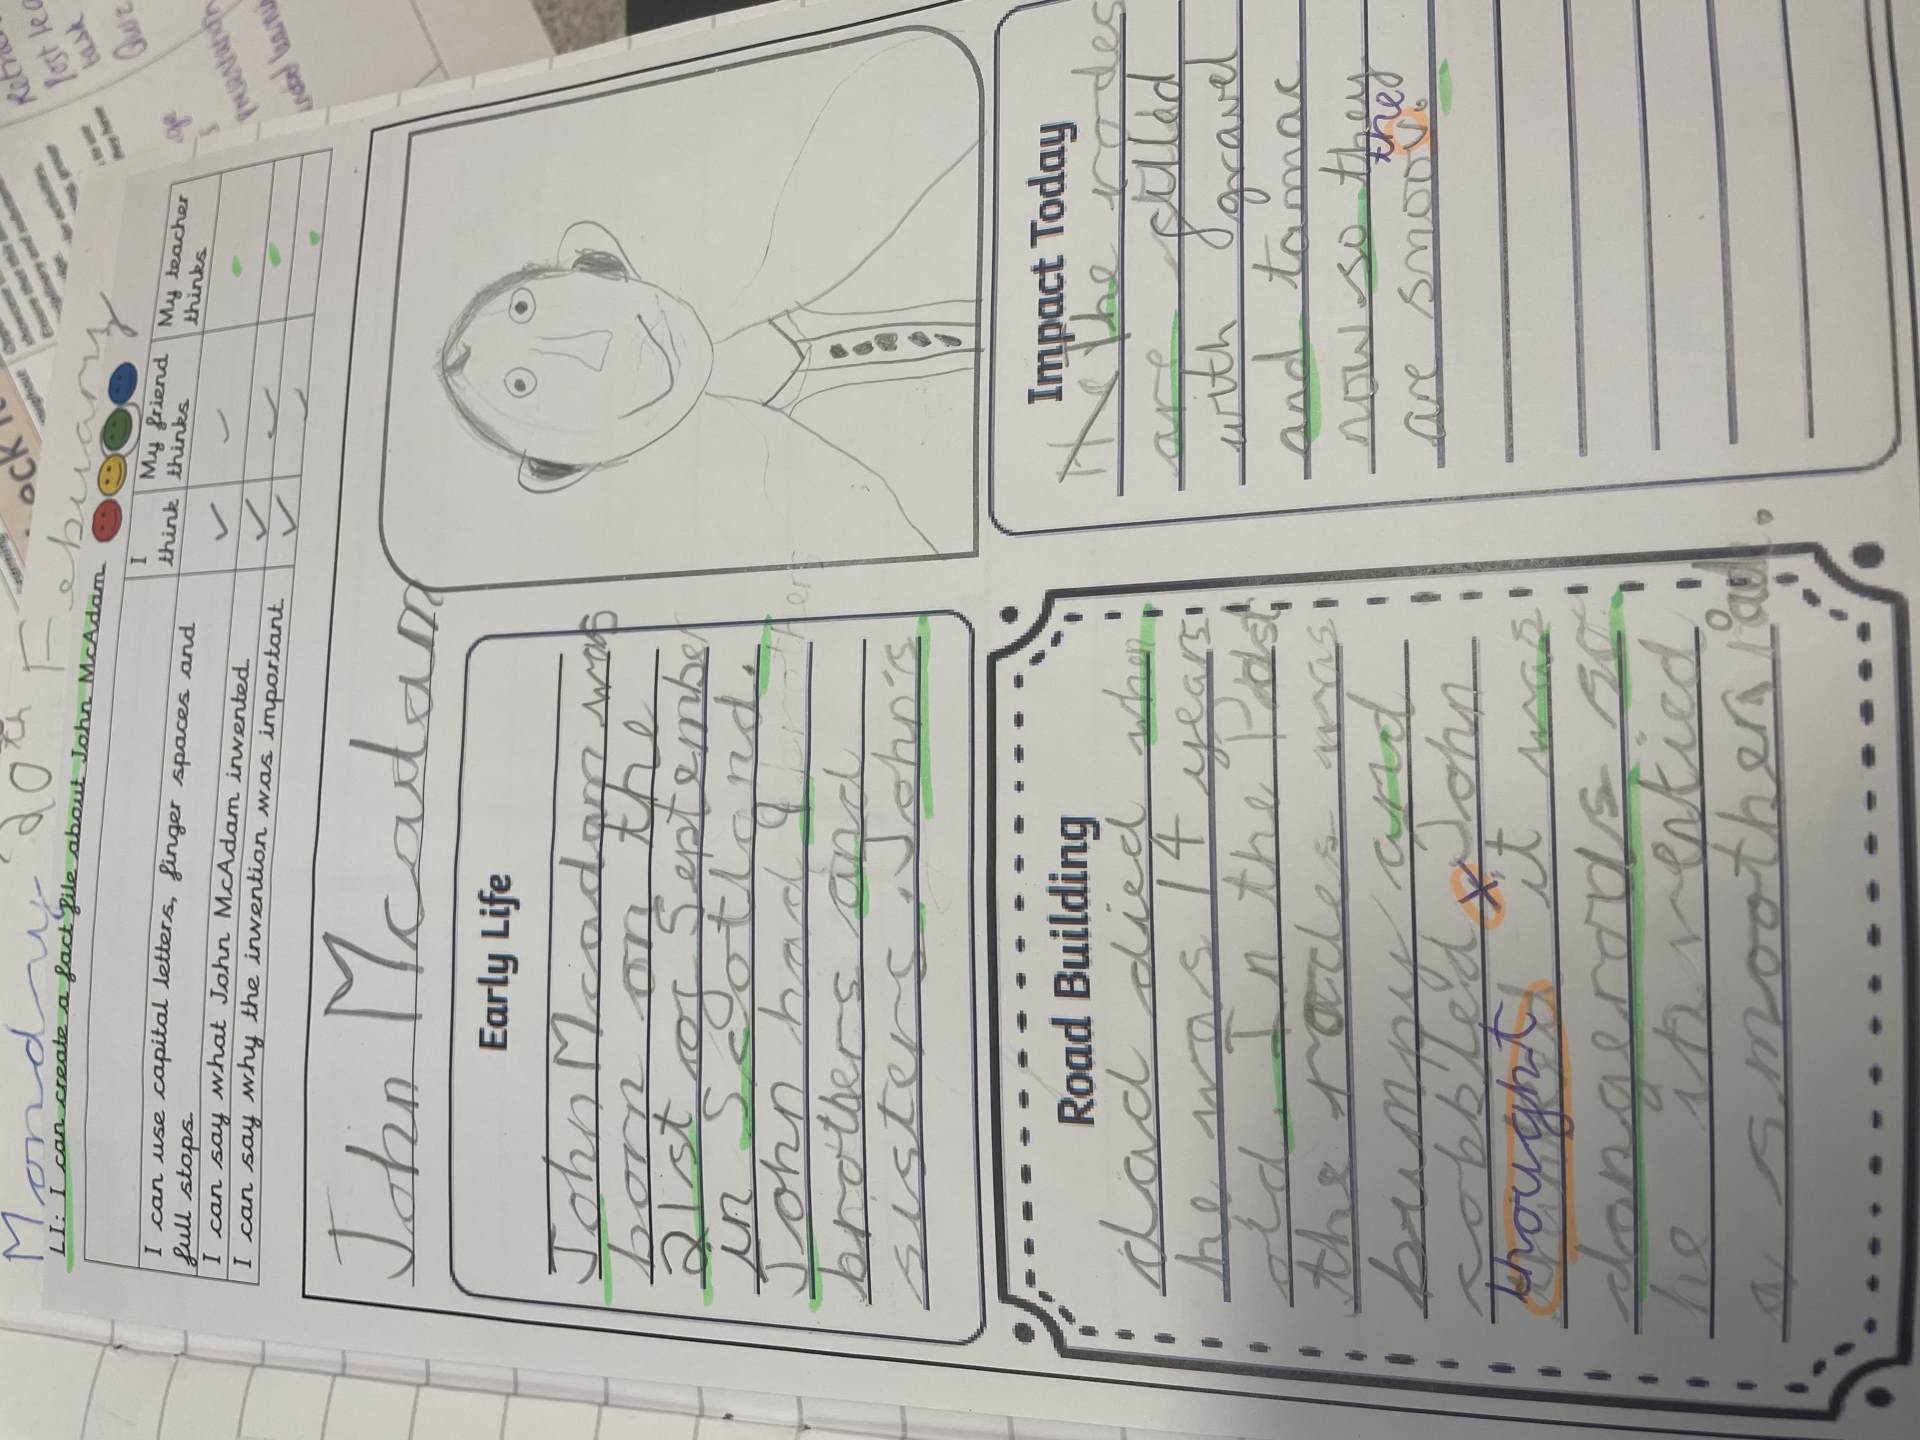 Monday 20th February
LI: I can create a fact file about John McAdam
I think
My friend thinks
My teacher thinks
I can use capital letters, finger spaces and full stops.
I can say what John McAdam invented.
I can say why the invention was important.
John Mcautam
Early Life
John Mcadam was
born on the
21st of September
in Scotland.
John had 9 brother
brothers and
sisters. John's
Road Building
dad died when
he was 14 years
old. In the Past
the rodes was
bumpy and
cobbled x John
thought it was
dangerous so
he invented
a smoother road.
Impact Today
the rodes
are filled
with gravel
and tarmac
now so they
they
are smooth.